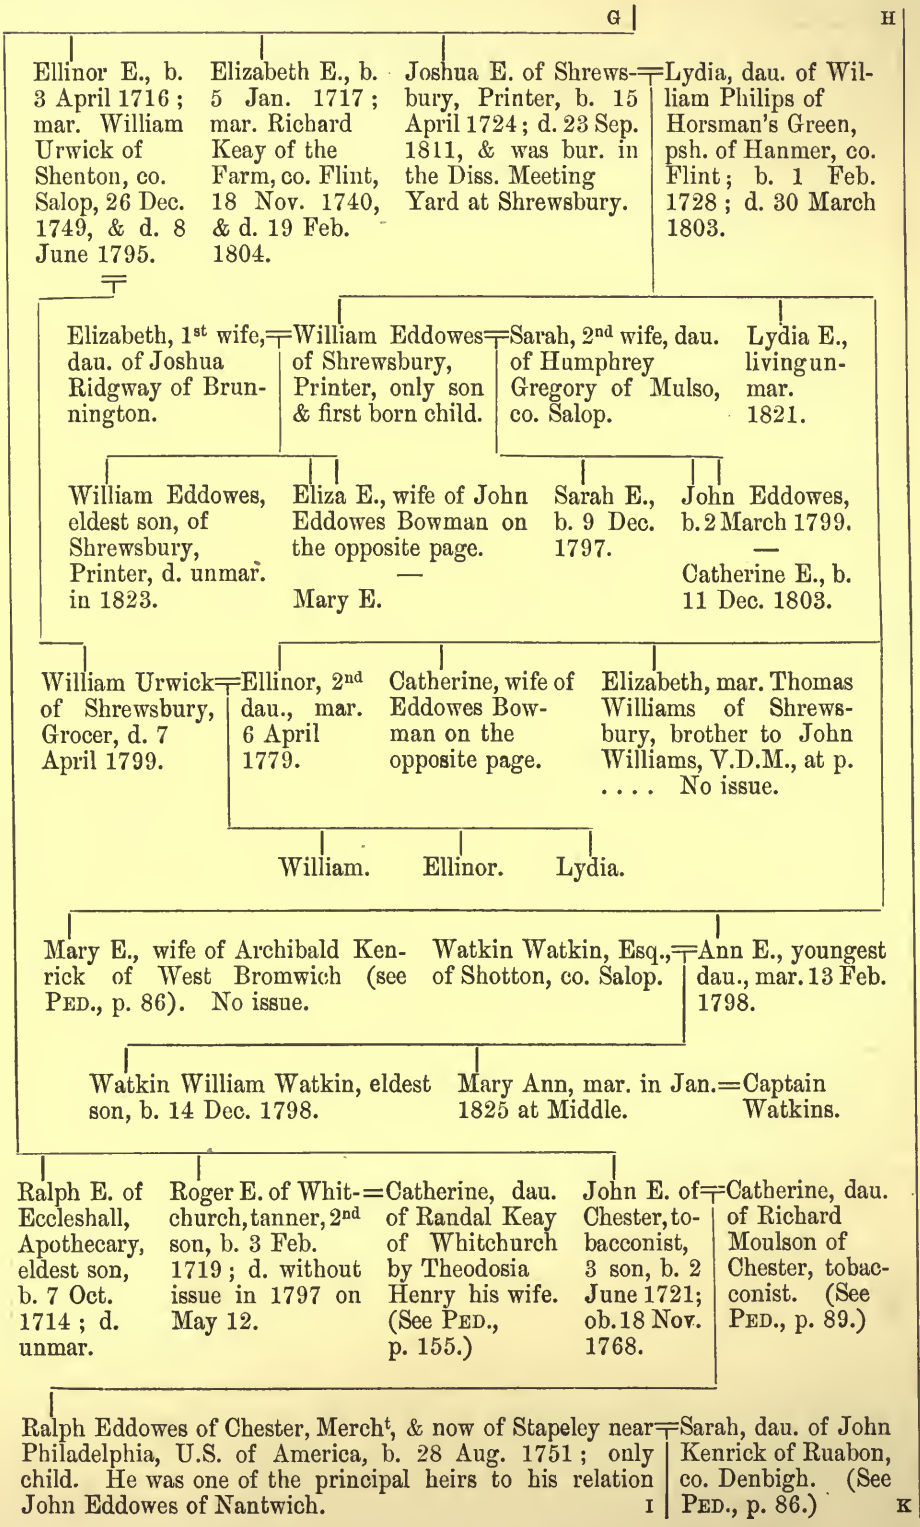 G H
Ellinor E., b.
3 April 1716 ;
mar. William
Urwick of
Shenton, co.
Salop, 26 Dec.
1749, & d. 8
June 1795.
Elizabeth E., b.
5 Jan. 1717 ;
mar. Richard
Keay of the
Farm, co. Flint,
18 Nov. 1740,
& d. 19 Feb.
1804.
Joshua E. of Shrews-
bury, Printer, b. 15
April 1724 ; d. 23 Sep.
1811, & was bur. in
the Diss. Meeting
Yard at Shrewsbury.
Lydia, dau. of Wil-
liam Philips of
Horsman's Green,
psh. of Hanmer, co.
Flint ; b. 1 Feb.
1728 ; d. 30 March
1803.
Elizabeth, 1st wife,
dau. of Joshua
Ridgway of Brun-
nington.
William Eddowes
of Shrewsbury,
Printer, only son
& first born child.
Sarah, 2nd wife, dau.
of Humphrey
Gregory of Mulso,
co. Salop.
Lydia E.,
living un-
mar.
1821.
William Eddowes,
eldest son, of
Shrewsbury,
Printer, d. unmar.
in 1823.
Eliza E., wife of John
Eddowes Bowman on
the opposite page.
—
Mary E.
Sarah E.,
b. 9 Dec.
1797.
John Eddowes,
b. 2 March 1799.
—
Catherine E., b.
11 Dec. 1803.
William Urwick
of Shrewsbury,
Grocer, d. 7
April 1799.
Ellinor, 2nd
dau., mar.
6 April
1779.
Catherine, wife of
Eddowes Bow-
man on the
opposite page.
Elizabeth, mar. Thomas
Williams of Shrews-
bury, brother to John
Williams, V.D.M., at p.
. . . . No issue.
William. Ellinor. Lydia.
Mary E., wife of Archibald Ken-
rick of West Bromwich (see
PED., p. 86). No issue.
Watkin Watkin, Esq.,
of Shotton, co. Salop.
Ann E., youngest
dau., mar. 13 Feb.
1798.
Watkin William Watkin, eldest
son, b. 14 Dec. 1798.
Mary Ann, mar. in Jan.=Captain
1825 at Middle. Watkins.
Ralph E. of
Eccleshall,
Apothecary,
eldest son,
b. 7 Oct.
1714 ; d.
unmar.
Roger E. of Whit-
church, tanner, 2nd
son, b. 3 Feb.
1719 ; d. without
issue in 1797 on
May 12.
=Catherine, dau.
of Randal Keay
of Whitchurch
by Theodosia
Henry his wife.
(See PED.,
p. 155.)
John E. of
Chester, to-
bacconist,
3 son, b. 2
June 1721;
ob. 18 Nov.
1768.
Catherine, dau.
of Richard
Moulson of
Chester, tobac-
conist. (See
PED., p. 89.)
Ralph Eddowes of Chester, Mercht, & now of Stapeley near
Philadelphia, U.S. of America, b. 28 Aug. 1751 ; only
child. He was one of the principal heirs to his relation
John Eddowes of Nantwich. I
Sarah, dau. of John
Kenrick of Ruabon,
co. Denbigh. (See
PED., p. 86.) K